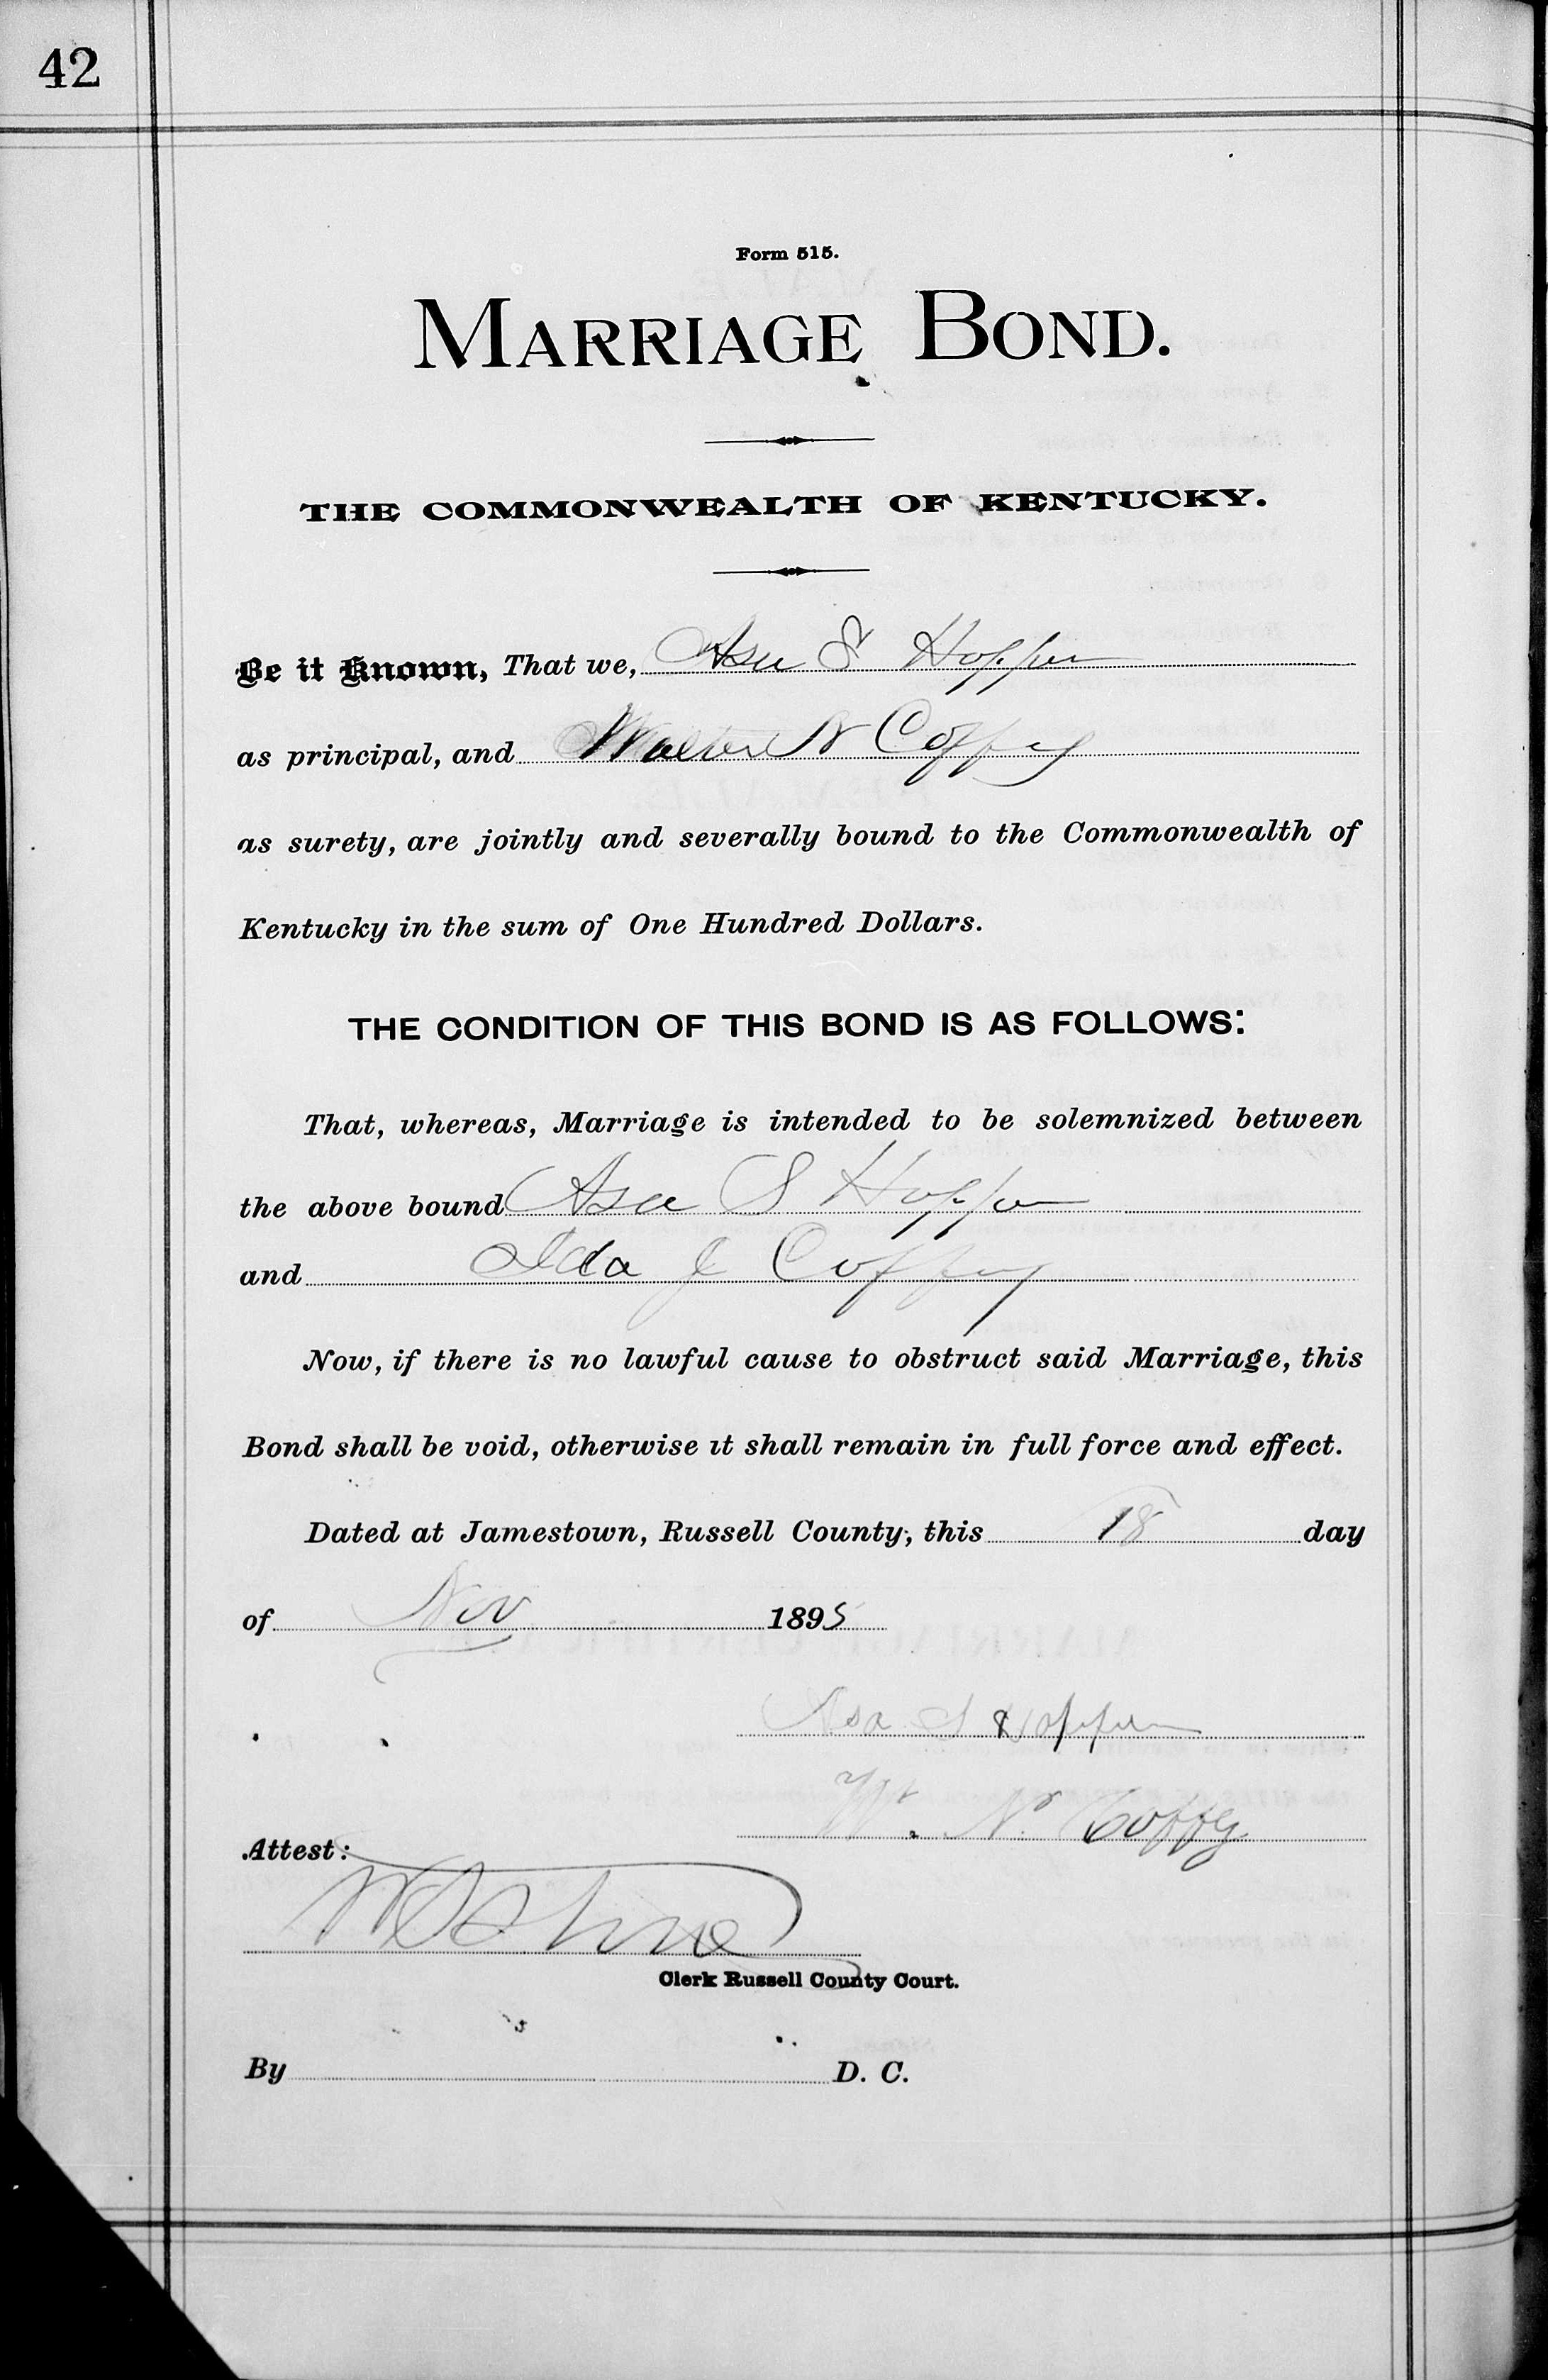 42
Form 515.
MARRIAGE BOND.
THE COMMONWEALTH OF KENTUCKY.
Be it Known, That we, Asa S Hopper
as principal, and Walter N Coffey
as surety, are jointly and severally bound to the Commonwealth of
Kentucky in the sum of One Hundred Dollars.
THE CONDITION OF THIS BOND IS AS FOLLOWS:
That, whereas, Marriage is intended to be solemnized between
the above bound Asa S Hopper
and Ida J Coffey
Now, if there is no lawful cause to obstruct said Marriage, this
Bond shall be void, otherwise it shall remain in full force and effect.
Dated at Jamestown, Russell County, this 18 day
of Nov 1895
Asa S Hopper
W. N. Coffey
Attest:
Clerk Russell County Court.
By D. C.